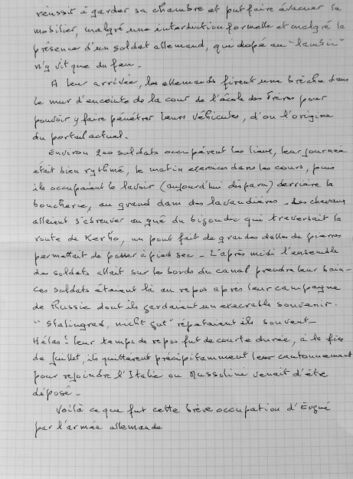 réussit à garder sa chambre et put faire évacuer le
mobilier, malgré une interdiction formelle et malgré la
présence d'un soldat allemand, qui dopé au "lambic"
n'y vit que du feu.
A leur arrivée, les allemands firent une brèche dans
le mur d'enceinte de la cour de l'école des Frères pour
pouvoir y faire pénétrer leurs véhicules, d'où l'origine
du portail actuel.
Environ 200 soldats occupèrent les lieux, leur journée
était bien rythmée, le matin exercices dans les cours, puis
ils occupaient le lavoir (aujourd'hui disparu) derrière la
boucherie, au grand dam des lavandières. Les chevaux
allaient s'abreuver au gué du bizoudre qui traversait la
route de Kerbo, un pont fait de grandes dalles de pierres
permettait de passer à pied sec. L'après midi l'ensemble
des soldats allait sur les bords du canal prendre leur bain.
Ces soldats étaient là au repos après leur campagne
de Russie dont ils gardaient un exécrable souvenir.
"Stalingrad, nicht gut" répétaient ils souvent.
Hélas! leur temps de repos fut de courte durée, à la fin
de Juillet, ils quittèrent précipitamment leur cantonnement
pour rejoindre l'Italie ou Mussolini venait d'être
déposé.
Voilà ce que fut cette brève occupation d'Evgué
par l'armée allemande